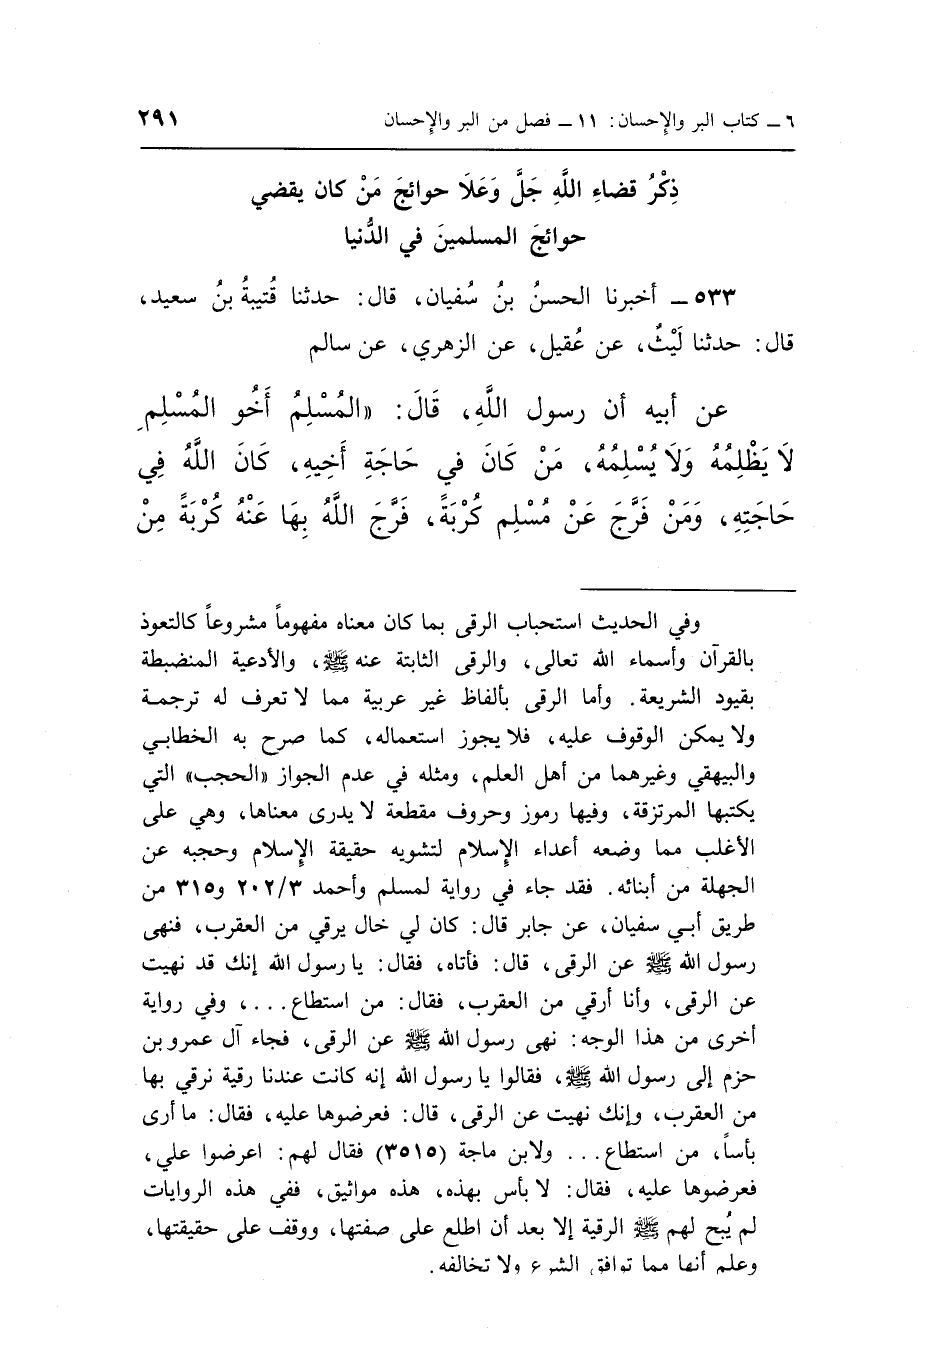 ٦ ـ كتاب البر والإحسان: ١١ ـ فصل من البر والإحسان ٢٩١
ذِكْرُ قضاءِ اللَّهِ جَلَّ وَعَلَا حوائجَ مَنْ كان يقضي
حوائجَ المسلمينَ في الدُّنيا
٥٣٣ ـ أخبرنا الحسنُ بنُ سُفيان، قال: حدثنا قُتيبةُ بنُ سعيد،
قال: حدثنا لَيْثٌ، عن عُقيل، عن الزهري، عن سالم
عن أبيه أن رسول اللَّهِ، قَالَ: «المُسْلِمُ أَخُو المُسْلِمِ
لَا يَظْلِمُهُ وَلَا يُسْلِمُهُ، مَنْ كَانَ في حَاجَةِ أَخِيهِ، كَانَ اللَّهُ فِي
حَاجَتِهِ، وَمَنْ فَرَّجَ عَنْ مُسْلِمٍ كُرْبَةً، فَرَّجَ اللَّهُ بِهَا عَنْهُ كُرْبَةً مِنْ
وفي الحديث استحباب الرقى بما كان معناه مفهوماً مشروعاً كالتعوذ
بالقرآن وأسماء الله تعالى، والرقى الثابتة عنه ﷺ، والأدعية المنضبطة
بقيود الشريعة. وأما الرقى بألفاظ غير عربية مما لا تعرف له ترجمة
ولا يمكن الوقوف عليه، فلا يجوز استعماله، كما صرح به الخطابي
والبيهقي وغيرهما من أهل العلم، ومثله في عدم الجواز «الحجب» التي
يكتبها المرتزقة، وفيها رموز وحروف مقطعة لا يدرى معناها، وهي على
الأغلب مما وضعه أعداء الإسلام لتشويه حقيقة الإسلام وحجبه عن
الجهلة من أبنائه. فقد جاء في رواية لمسلم وأحمد ٢٠٢/٣ و٣١٥ من
طريق أبي سفيان، عن جابر قال: كان لي خال يرقي من العقرب، فنهى
رسول الله ﷺ عن الرقى، قال: فأتاه، فقال: يا رسول الله إنك قد نهيت
عن الرقى، وأنا أرقي من العقرب، فقال: من استطاع....، وفي رواية
أخرى من هذا الوجه: نهى رسول الله ﷺ عن الرقى، فجاء آل عمرو بن
حزم إلى رسول الله ﷺ، فقالوا يا رسول الله إنه كانت عندنا رقية نرقي بها
من العقرب، وإنك نهيت عن الرقى، قال: فعرضوها عليه، فقال: ما أرى
بأساً، من استطاع... ولابن ماجة (٣٥١٥) فقال لهم: اعرضوا علي،
فعرضوها عليه، فقال: لا بأس بهذه، هذه مواثيق، ففي هذه الروايات
لم يُبح لهم ﷺ الرقية إلا بعد أن اطلع على صفتها، ووقف على حقيقتها،
وعلم أنها مما توافق الشرع ولا تخالفه.